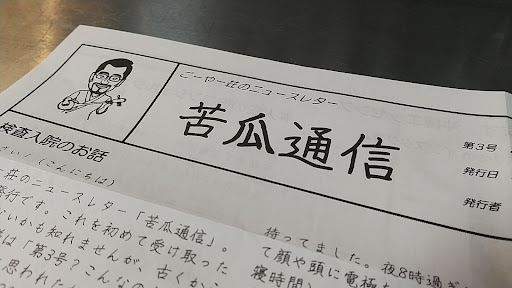 ごーやー荘のニュースレター
苦瓜通信
第3号
発行日
発行者
検査入院のお話
さい！（こんにちは）
荘のニュースレター「苦瓜通信」。
発行です。これを初めて受け取った
ないかも知れませんが、古くか
は「第3号？こんなの
思われた
待ってました。夜8時過ぎ
て顔や頭に電極
寝時間）